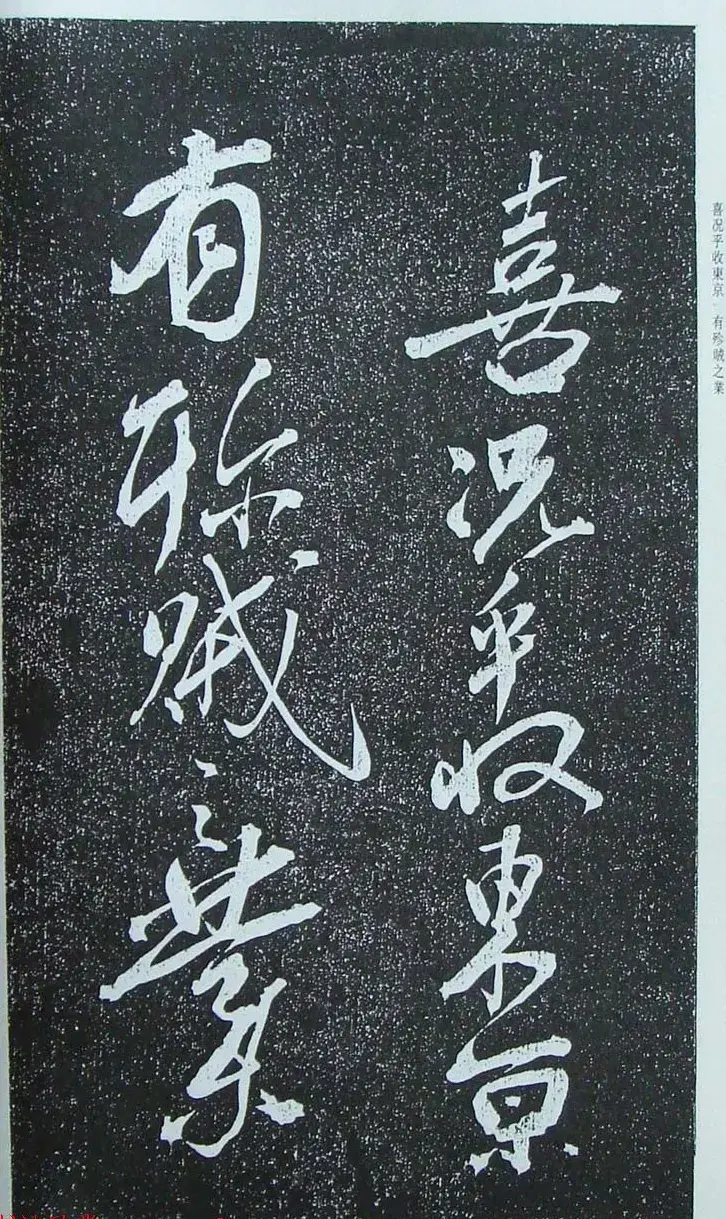 喜况乎收東京
有殄賊之業
喜况乎收東京 有殄賊之業